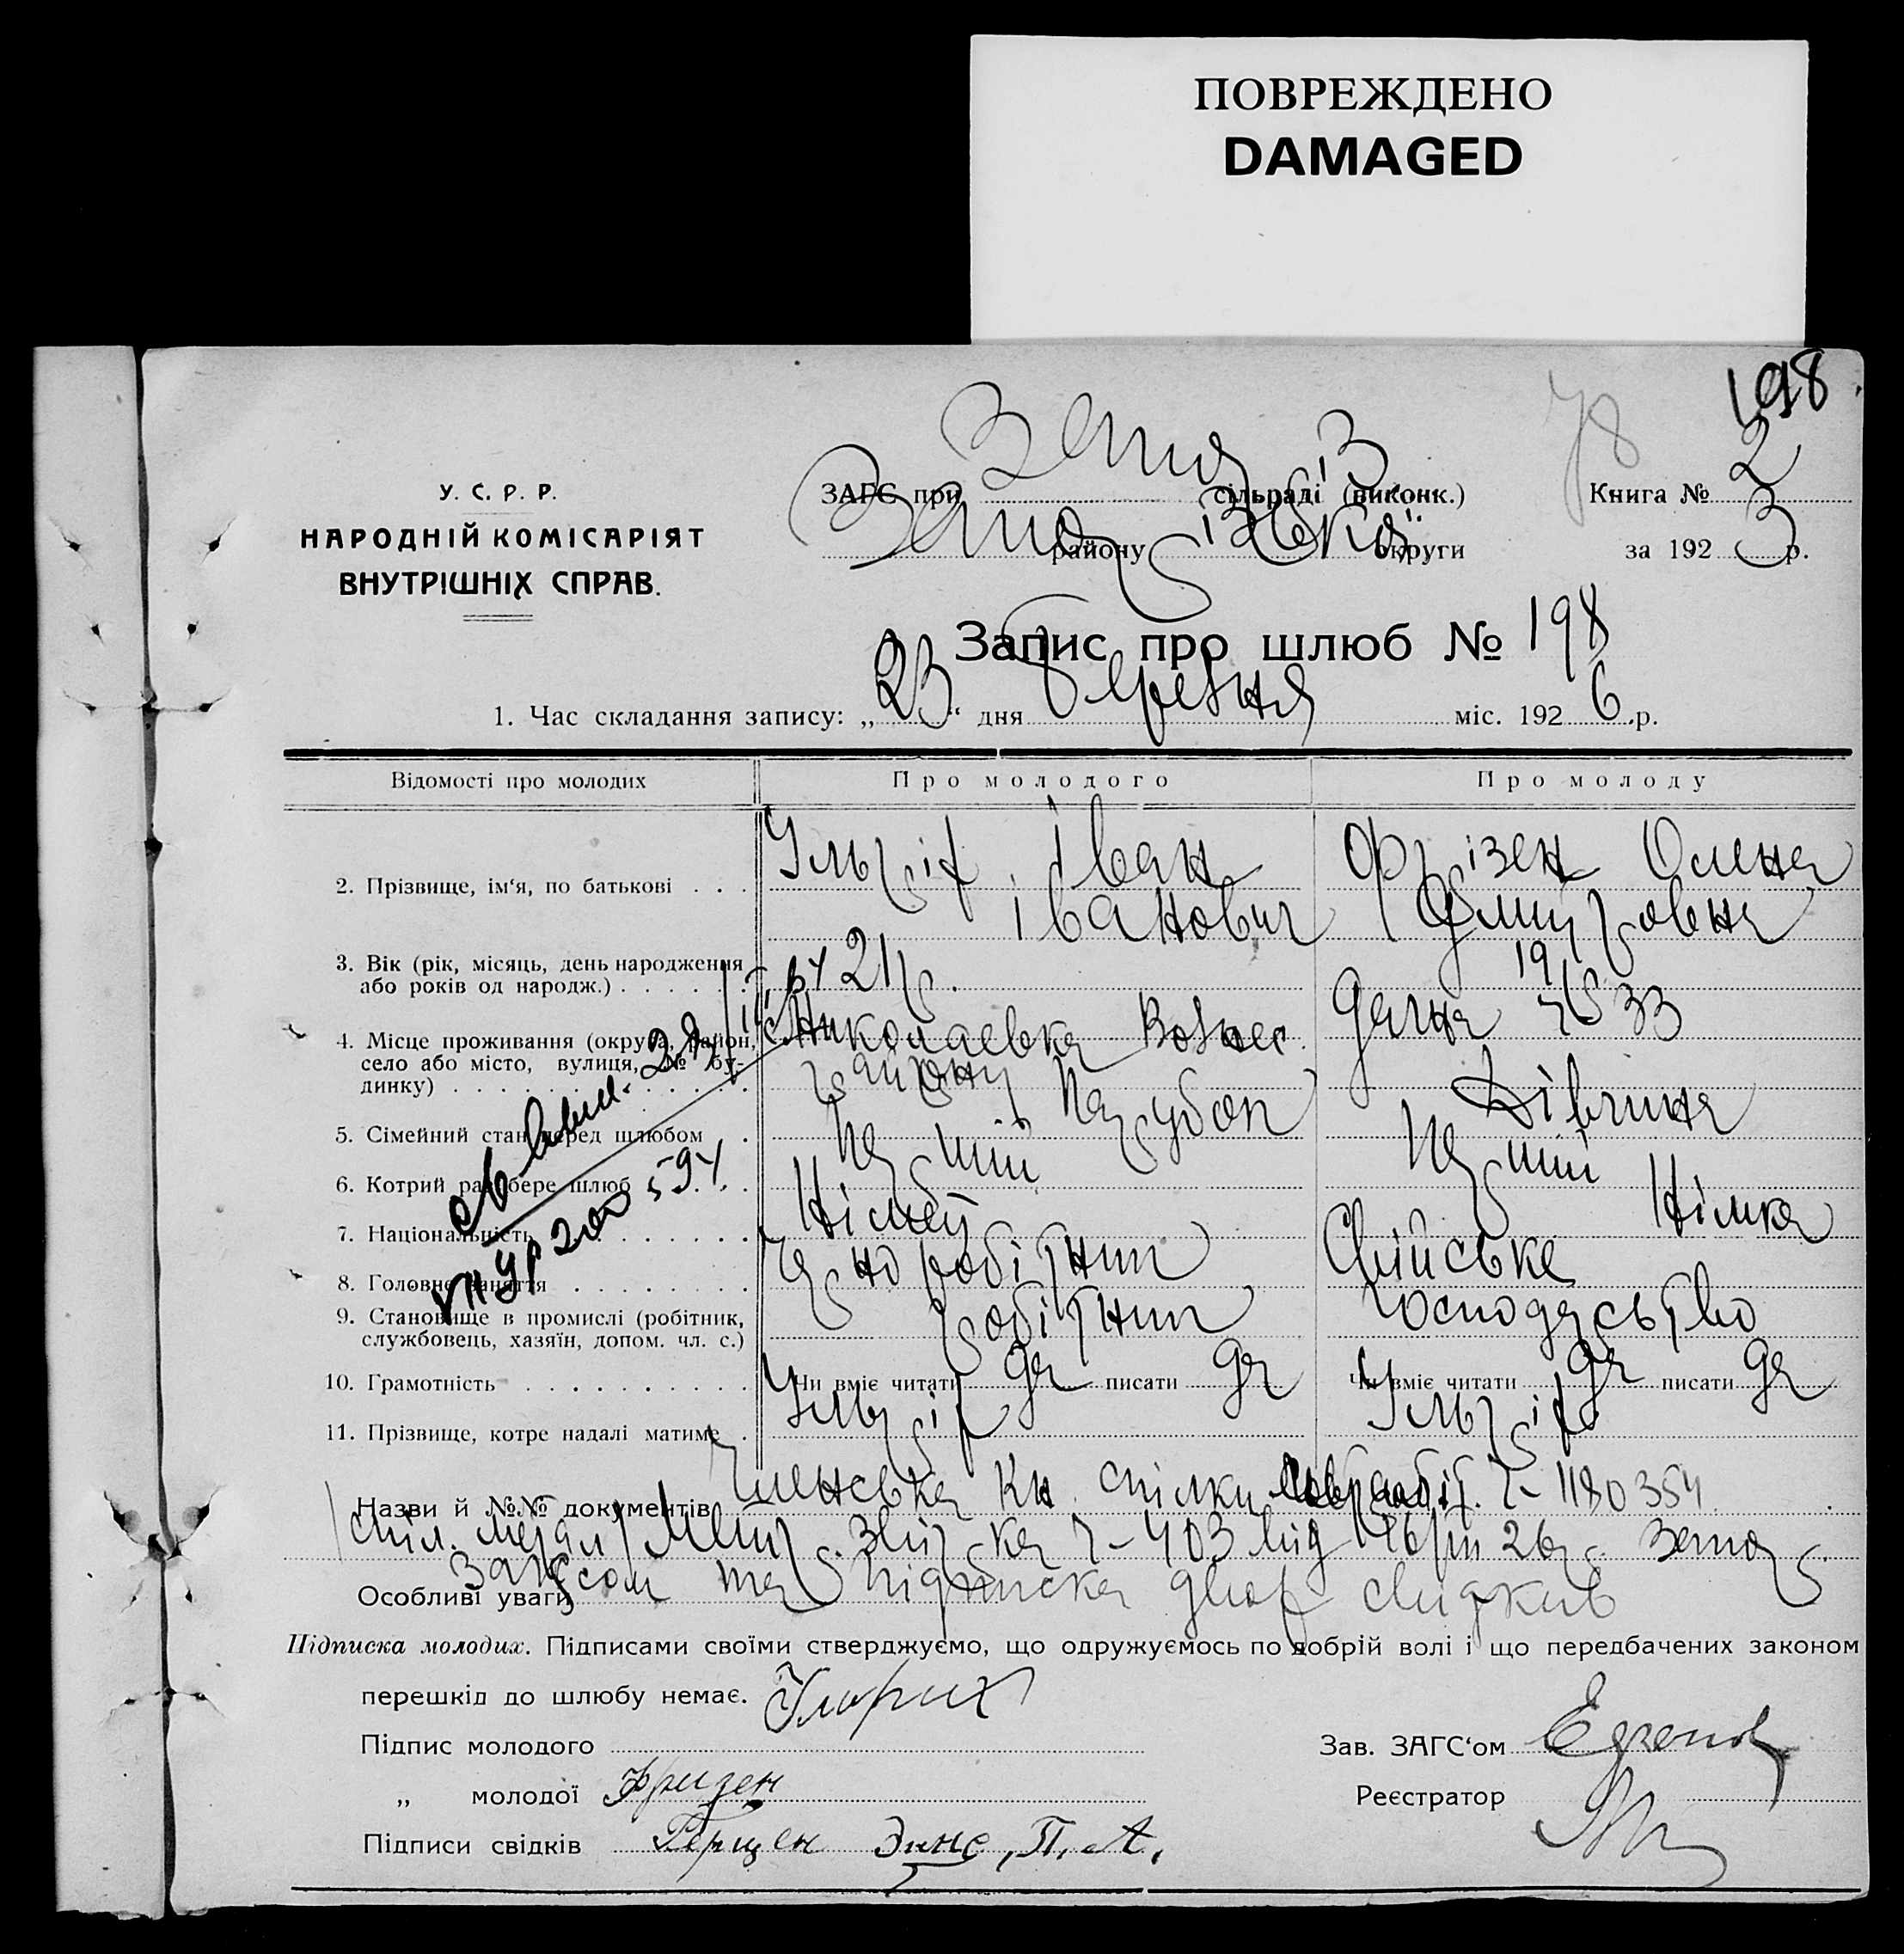 ПОВРЕЖДЕНО
DAMAGED
198
78
У. С. Р. Р.
НАРОДНІЙ КОМІСАРІЯТ
ВНУТРІШНІХ СПРАВ.
ЗАГС при сільраді (виконк.) Книга № 2
району округи за 192 3 р.
Запис про шлюб № 198
1. Час складання запису: „23“ дня березня міс. 1926 р.
Відомості про молодих Про молодого Про молоду
2. Прізвище, ім‘я, по батькові . . . Ульріх Іван Фрізен Олена
Іванович
3. Вік (рік, місяць, день народження 21 р. 19
або років од народж.)
4. Місце проживання (округа, район, Николаевка Дачна 33
село або місто, вулиця, № бу- району
динку)
5. Сімейний стан перед шлюбом . Парубок Дівчина
6. Котрий раз бере шлюб Перший Перший
7. Національність Німець Німка
8. Головне заняття Чорноробітник Свійське
9. Становище в промислі (робітник, робітник господарство
службовець, хазяїн, допом. чл. с.)
10. Грамотність Чи вміє читати да писати да Чи вміє читати да писати да
11. Прізвище, котре надалі матиме . Ульріх Ульріх
Назви й №№ документів Членська кн. спілки 1180354
403 від 26 р.
Особливі уваги Загсом та підписка двох свидків
Підписка молодих. Підписами своїми стверджуємо, що одружуємось по добрій волі і що передбачених законом
перешкід до шлюбу немає. Ульрих
Підпис молодого Зав. ЗАГС‘ом
„ молодої Фризен Реєстратор
Підписи свідків Герцен Эннс, П. А.